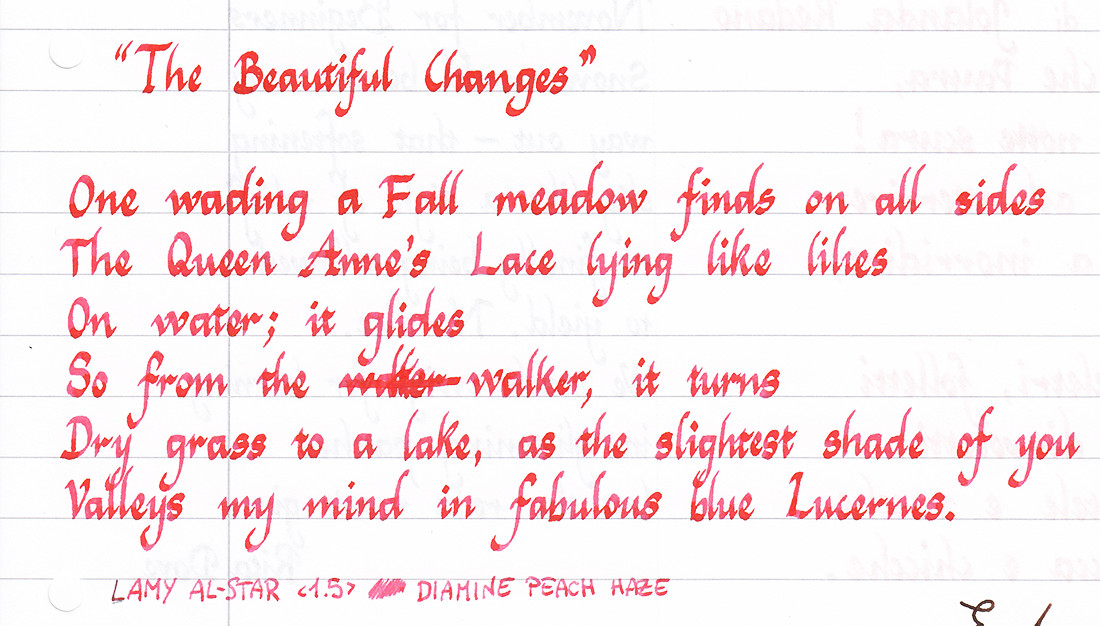 "The Beautiful Changes"
One wading a Fall meadow finds on all sides
The Queen Anne's Lace lying like lilies
On water; it glides
So from the walker, it turns
Dry grass to a lake, as the slightest shade of you
Valleys my mind in fabulous blue Lucernes.
LAMY AL-STAR <1.5> DIAMINE PEACH HAZE